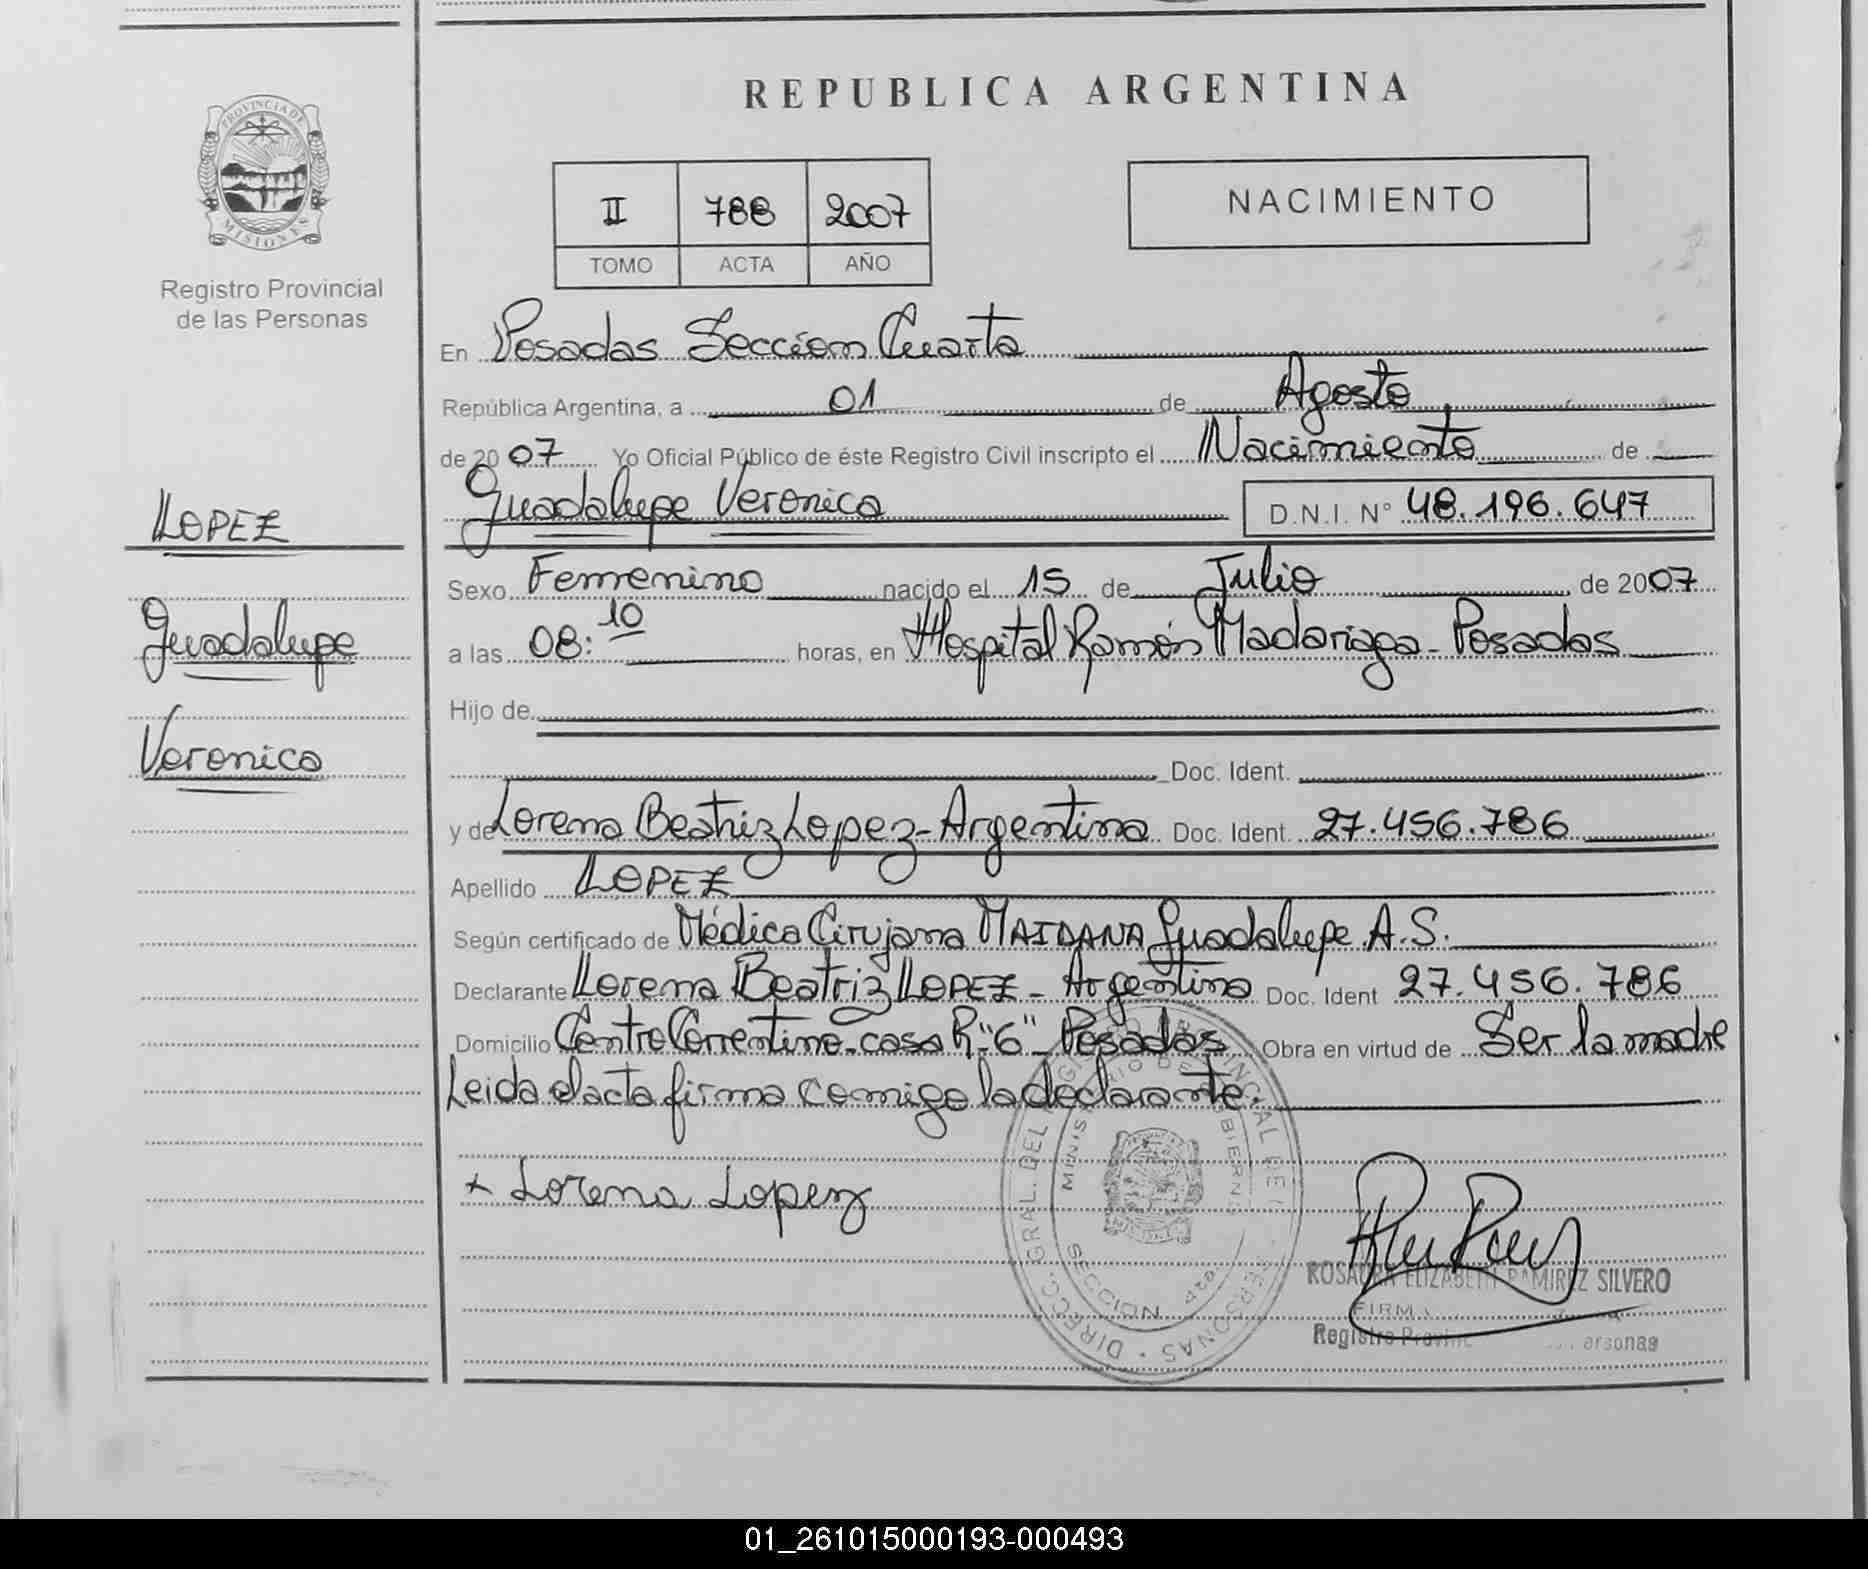 REPUBLICA ARGENTINA
PROVINCIA DE MISIONES
Registro Provincial
de las Personas
II 788 2007
TOMO ACTA AÑO
NACIMIENTO
LOPEZ
Guadalupe
Veronica
En Posadas Sección Cuarta
República Argentina, a 01 de Agosto
de 2007 Yo Oficial Público de éste Registro Civil inscripto el Nacimiento de
Guadalupe Veronica D.N.I. N° 48.196.647
Sexo Femenino nacido el 15 de Julio de 2007
a las 08:10 horas, en Hospital Ramón Madariaga - Posadas
Hijo de
Doc. Ident.
y de Lorena Beatriz Lopez - Argentina Doc. Ident 27.456.786
Apellido LOPEZ
Según certificado de Médica Cirujana MAIDANA Guadalupe A.S.
Declarante Lorena Beatriz LOPEZ - Argentina Doc. Ident 27.456.786
Domicilio Centro Correntino - casa R. "6" - Posadas Obra en virtud de Ser la madre
Leida el acta firma comigo la declarante.
x Lorena Lopez
DIRECC. GRAL. DEL PROVINCIAL DE PERSONAS
SECCION
ROSAURA ELIZABETH RAMIREZ SILVERO
FIRMA
Registro
01_261015000193-000493